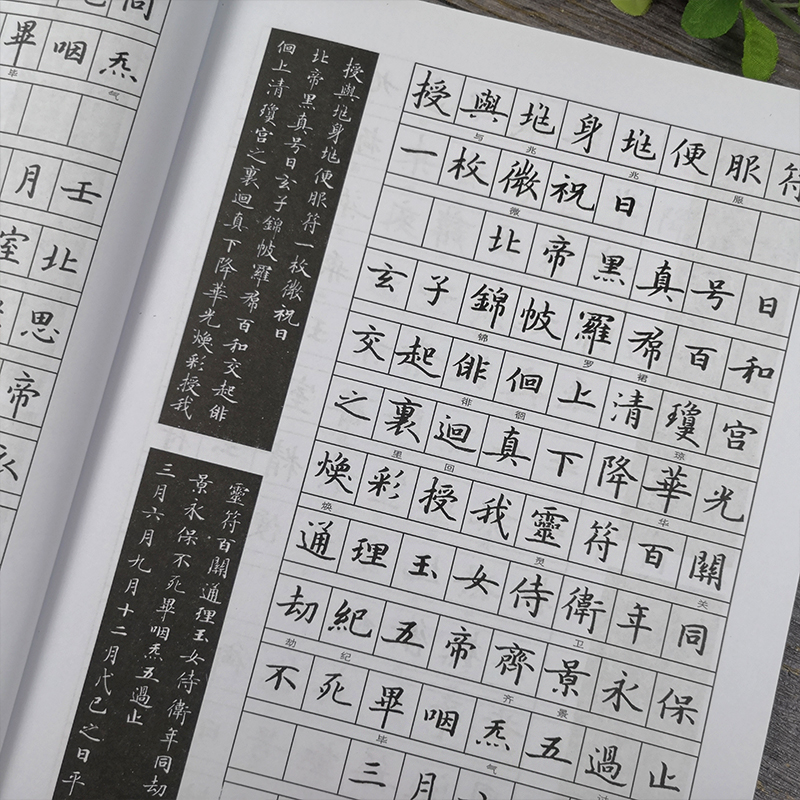 同
畢咽炁
毕 气
月壬
室北
思
帝
授與垗身垗便服符一枚微祝日
北帝黑真号日玄子錦帔羅帬百和交起俳
佪上清瓊宮之裏迴真下降華光煥彩授我
靈符百關通理玉女侍衛年同劫
景永保不死畢咽炁五過止
三月六月九月十二月戊己之日平
授與垗身垗便服符
与 兆 兆 服
一枚微祝日
微
北帝黑真号日
玄子錦帔羅帬百和
锦 罗 裙
交起俳佪上清瓊宮
徘 徊 琼
之裏迴真下降華光
里 回 华
煥彩授我靈符百關
焕 灵 关
通理玉女侍衛年同
卫
劫紀五帝齊景永保
劫 纪 齐 景
不死畢咽炁五過止
毕 气 过
三月六